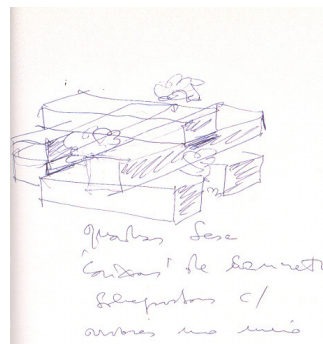 quadras Sesc
"caixas" de concreto
sobrepostas c/
árvores no meio